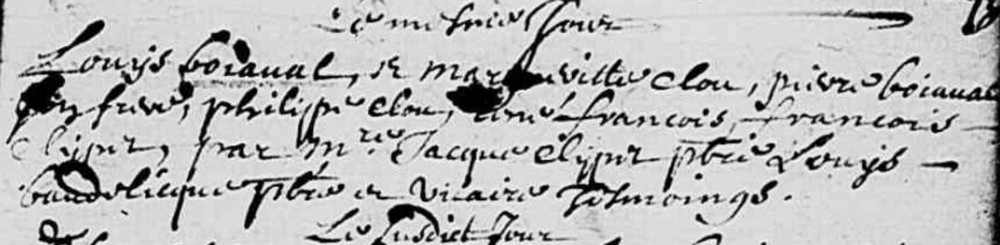 Le mesme Jour
Louys boiaual, et marguerite Clou, pierre boiaual
son frere, philippe Clou, René francois, francois
Clipet, par Mre Jacque Clipet pbre Louys
baudelicque pbre et vicaire tesmoings.
Le susdict Jour